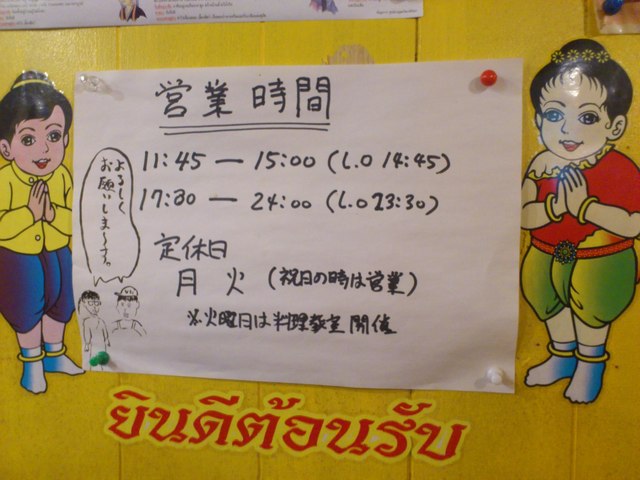 営業時間
11:45 — 15:00 (L.O 14:45)
17:30 — 24:00 (L.O 23:30)
定休日
月 火 (祝日の時は営業)
※火曜日は料理教室開催
よろしく
お願いしま〜す。
ยินดีต้อนรับ